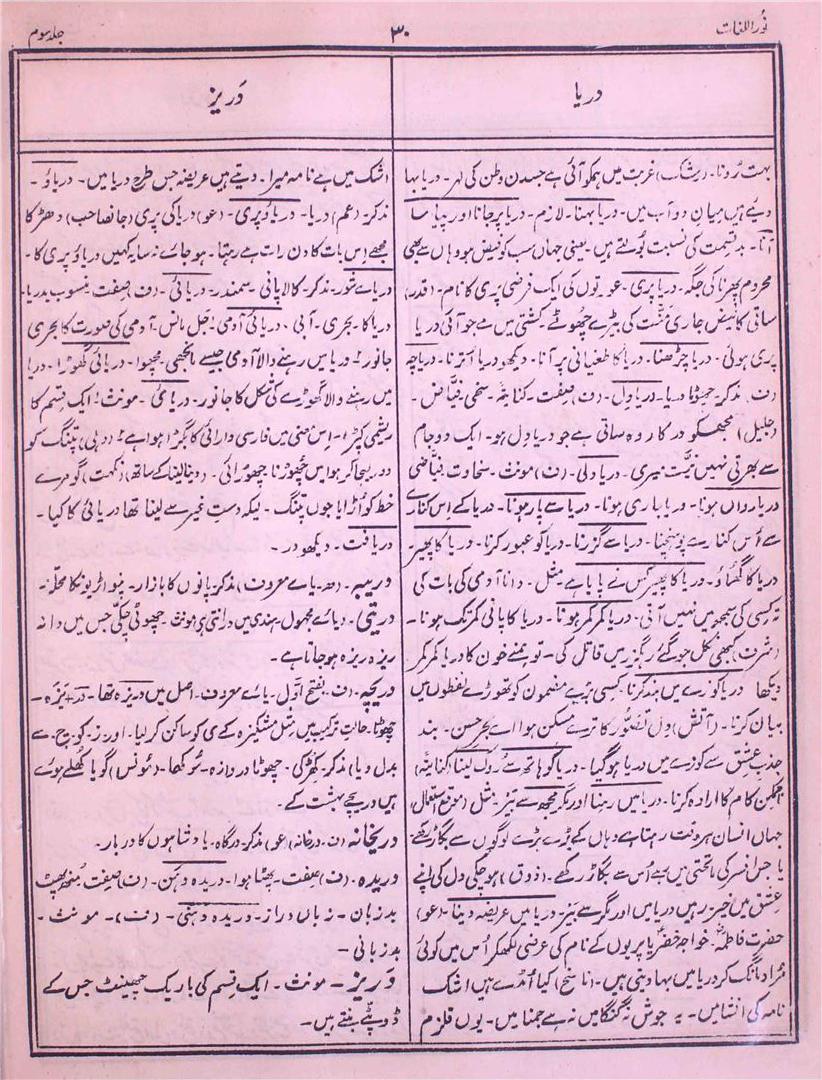 نوراللغات
۳۰
جلد سوم
دریا
دَریز
بہت رُونا۔ (رشک) غربت میں ہمکو آئی ہے جسدن وطن کی لہر۔ دریا بہا
دیے ہیں میان دوآب میں۔ دریا بہنا۔ لازم۔ دریا پر جانا اور پیاسا
آنا۔ بدقسمت کی نسبت بولتے ہیں۔ یعنی جہاں سب کو فیض ہو وہاں سے بھی
محروم پھرنا کی جگہ۔ دریا پری۔ عورتوں کی ایک فرضی پری کا نام۔ (قدر)
ساقی کا فیض جاری کی بیڑے چھوٹے۔ کشتی میں مے جو آئی دریا
پری ہوئی۔ دریا چڑھنا۔ دریا کا طغیانی پر آنا۔ دیکھو دریا اُترنا۔ دریاچہ
(ف) مذکر۔ چھوٹا دریا۔ دریادِل۔ (ف) صِفت۔ کنایۃً۔ سخی۔ فیّاض۔
(جلیل) مجھکو درکار وہ ساقی ہے جو دریا دل ہو۔ ایک دو جام
سے بھرتی نہیں نیّت میری۔ دریا دلی۔ (ف) مونث۔ سخاوت۔ فیّاضی
دریا رواں ہونا۔ دریا جاری ہونا۔ دریا سے پار ہونا۔ دریا کے اِس کنارے
سے اُس کنارے پہنچنا۔ دریا سے گزرنا۔ دریا کو عبور کرنا۔ دریا کا پھیر۔
دریا کا گھماؤ۔ دریا کا پھیر کس نے پایا ہے مثل۔ دانا آدمی کی بات کی
تہ کسی کی سمجھ میں نہیں آتی۔ دریا کمر کمر ہونا۔ دریا کا پانی کمر تک ہونا۔
(شرف) کبھی نکل جو گئے رہگزر میں قاتل کی۔ تو ہمنے خون کا دریا کمر کمر
دیکھا دریا کوزے میں بند کرنا۔ کسی بڑے مضمون کو تھوڑے لفظوں میں
بیان کرنا۔ (آتش) دل تصوّر کا ترے مسکن ہوا اے بحر حسن۔ بند
جذب عشق سے کوزے میں دریا ہو گیا۔ دریا کو ہاتھ سے رُوک لینا (کنایۃً)
ناممکن کام کا ارادہ کرنا۔ دریا میں رہنا اور مگر مچھ سے بَیر۔ مثل (موقع استعمال)
جہاں انسان ہر وقت رہتا ہے وہاں کے بڑے بڑے لوگوں سے بگاڑ رکھے
یا جس افسر کی ماتحتی میں ہے اُس سے بگاڑ رکھے۔ (ذوق) ہو چکی دل کی اپنے
عشق میں خیر۔ رہیں دریا میں اور مگر سے بَیر۔ دریا میں عریضہ دینا۔ (عو)
حضرت فاطمہؓ۔ خواجہ خضرؑ یا پریوں کے نام کی عرضی لکھکر اُس میں کوئی
مُراد مانگ کر دریا میں بہا دیتی ہیں۔ (ناسخ) کیا اُمڈے ہیں اشک
نامہ کی انشا میں۔ یہ جوش نہ گنگا میں نہ ہے جمنا میں۔ یوں قلزم
اشک میں ہے نامہ میرا۔ دیتے ہیں عریضہ جس طرح دریا میں۔ دریاؤ۔
مذکر۔ (عم) دریا۔ دریاؤ پری۔ (عو) دریا کی پری (جانصاحب) دھڑکا
مجھے اِس بات کا دن رات ہے رہتا۔ ہو جاے نہ سایہ کہیں دریاؤ پری کا۔
دریاے شور۔ مذکر۔ کالا پانی۔ سمندر۔ دریائی۔ (ف) صِفت منسوب بدریا۔
دریا کا۔ بحری۔ آبی۔ دریائی آدمی۔ جل مانس۔ آدمی کی صورت کا بحری
جانور ۲ دریا میں رہنے والا آدمی جیسے مانجھی۔ مچھوا۔ دریائی گھوڑا۔ دریا
میں رہنے والا گھوڑے کی شکل کا جانور۔ دریائی۔ مونث۔ ۱ ایک قسم کا
ریشمی کپڑا۔ اِس معنی میں فارسی دارائی کا بگڑا ہوا ہے ۲ (دہلی) پتنگ کو
دور لیجاکر ہوا میں چھوڑنا۔ چھوڑائی۔ (دینا لینا کے ساتھ) (نکہت) گو مرے
خط کو اُڑایا جوں پتنگ۔ لیک دست غیر سے لینا تھا دریائی کا کیا۔
دریافت۔ دیکھو در۔
دریبہ۔ (ھ۔ یاے معروف) مذکر۔ پانوں کا بازار۔ پنواڑیونکا محلّہ۔
درِیتی۔ دیاے مجہول۔ ہندی میں درانتی) مونث۔ چھوٹی چکّی جس میں دانہ
ریزہ ریزہ ہو جاتا ہے۔
دریچہ۔ (ف۔ بفتح اوّل۔ یاے معروف۔ اصل میں دریزہ تھا۔ در+یزہ۔
چھوٹا۔ حالتِ ترکیب میں مثل مشکیزہ کے ی کو ساکن کر لیا۔ اور۔ز۔کو۔چ۔سے
بدل دیا) مذکر۔ کھڑکی۔ چھوٹا دروازہ۔ مُوکھا۔ (مُونس) گویا کُھلے ہوئے
ہیں دریچے بہشت کے۔
دریخانہ (ف۔ درخانہ) (عو) مذکر۔ درگاہ۔ بادشاہوں کا دربار۔
دریدہ۔ (ف) صِفت۔ پھٹا ہوا۔ دریدہ دہن۔ (ف) صِفت مُنھ پھٹ
بدزبان۔ زباں دراز۔ دریدہ دہنی۔ (ف)۔ مونث۔
بدزبانی۔
دَریز۔ مونث۔ ایک قسم کی باریک چھینٹ جس کے
ڈوپٹے بنتے ہیں۔